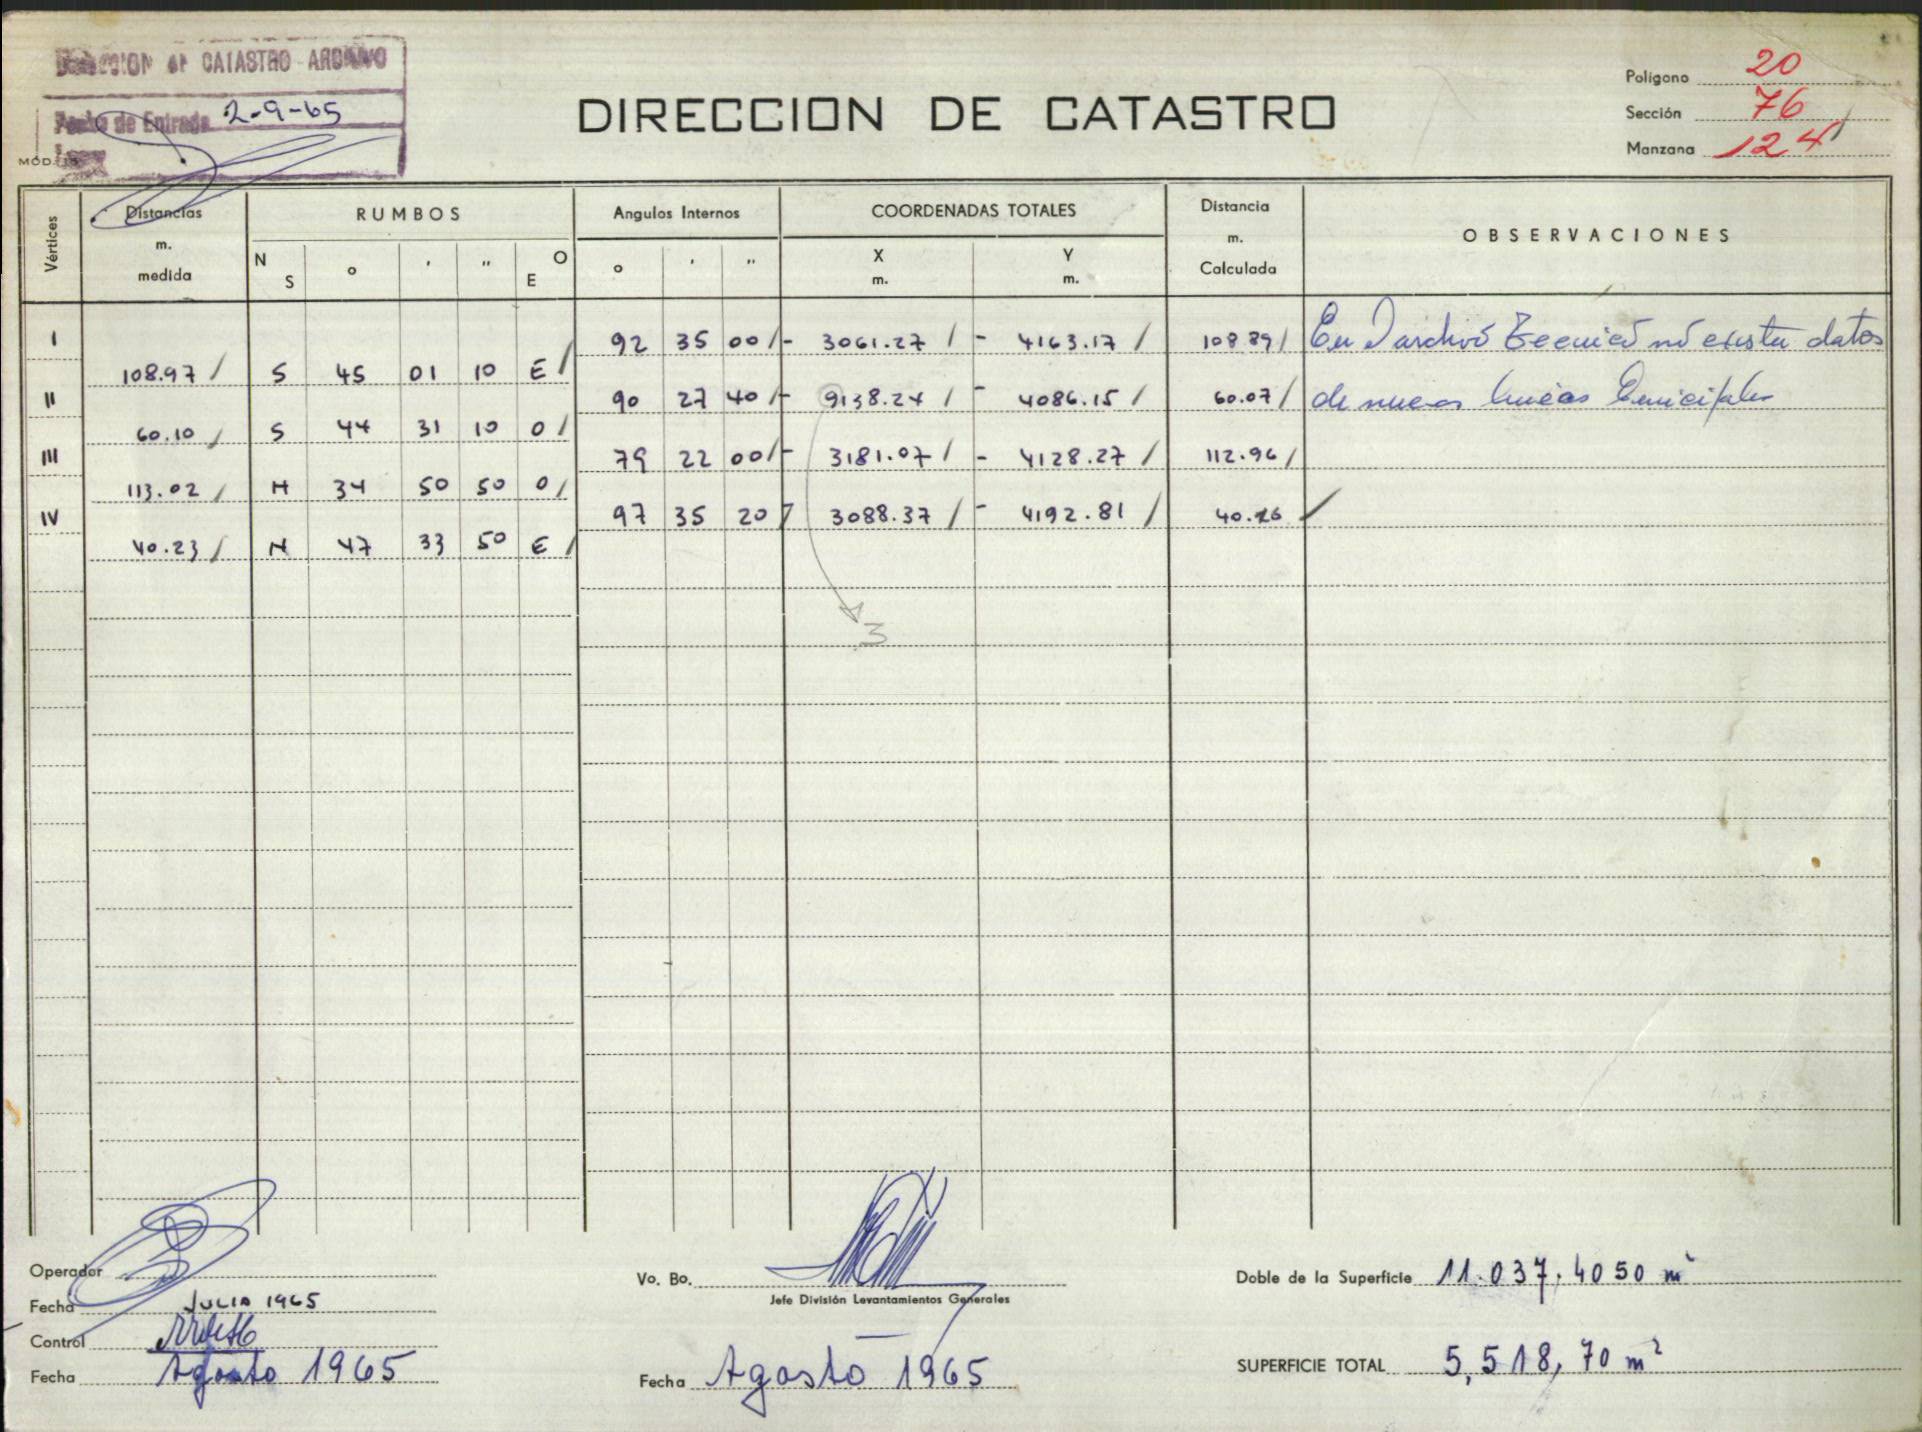 DIRECCION DE CATASTRO ARCHIVO
Fecha de Entrada 2-9-65
MOD. 15
DIRECCION DE CATASTRO
Polígono 20
Sección 76
Manzana 124
Vértices
Distancias m. medida
RUMBOS
N S o ' '' O E
Angulos Internos
o ' ''
COORDENADAS TOTALES
X m. Y m.
Distancia m. Calculada
OBSERVACIONES
I 92 35 00 / - 3061.27 / - 4163.17 / 108 89 / En archivo Tecnico no existe datos
108.97 / S 45 01 10 E /
II 90 27 40 / - 9138.24 / - 4086.15 / 60.07 / de nuevas lineas
60.10 / S 44 31 10 O /
III 79 22 00 / - 3181.07 / - 4128.27 / 112.96 /
113.02 / N 34 50 50 O /
IV 97 35 20 / 3088.37 / - 4192.81 / 40.26 /
40.23 / N 47 33 50 E /
3
Operador
Fecha JULIO 1965
Control
Fecha Agosto 1965
Vo. Bo.
Jefe División Levantamientos Generales
Fecha Agosto 1965
Doble de la Superficie 11.037,4050 m²
SUPERFICIE TOTAL 5,518,70 m²